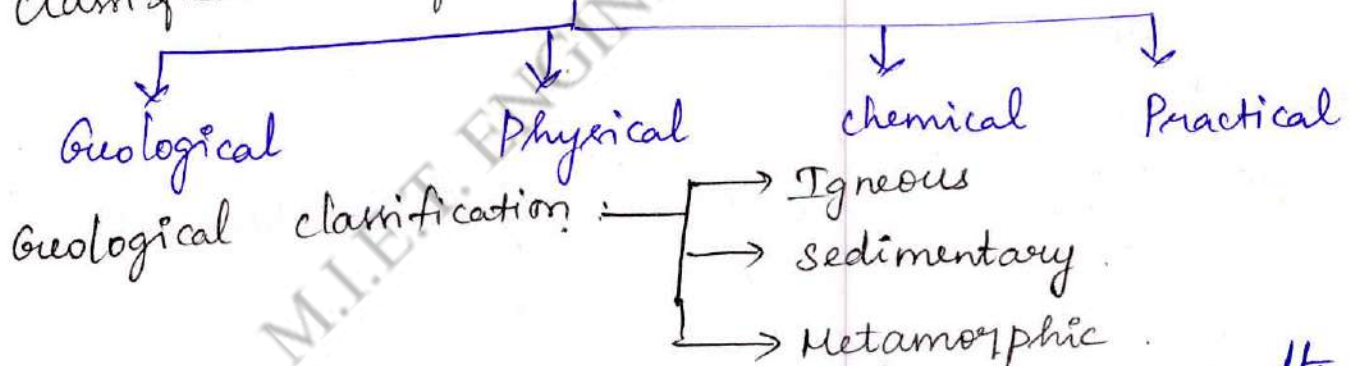 Geological Physical chemical Practical
Geological classification :
Igneous
sedimentary .
Metamorphic .
M.I.E.T. ENGIN